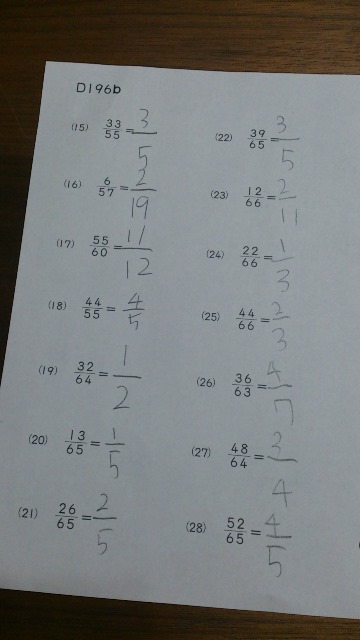 D196b
(15) 33/55 = 3/5
(16) 6/57 = 2/19
(17) 55/60 = 11/12
(18) 44/55 = 4/5
(19) 32/64 = 1/2
(20) 13/65 = 1/5
(21) 26/65 = 2/5
(22) 39/65 = 3/5
(23) 12/66 = 2/11
(24) 22/66 = 1/3
(25) 44/66 = 2/3
(26) 36/63 = 4/7
(27) 48/64 = 3/4
(28) 52/65 = 4/5